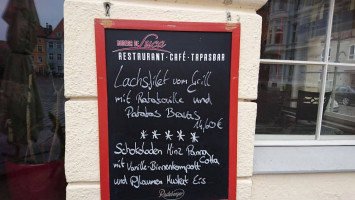 Luca
RESTAURANT-CAFÉ-TAPASBAR
Lachsfilet vom Grill
mit Ratatouille und
Patatas Bravas
14,60€
*****
Schokoladen Minz Panna
Cotta
mit Vanille-Birnenkompott
und Pflaumen Muskat Eis
Radeberger